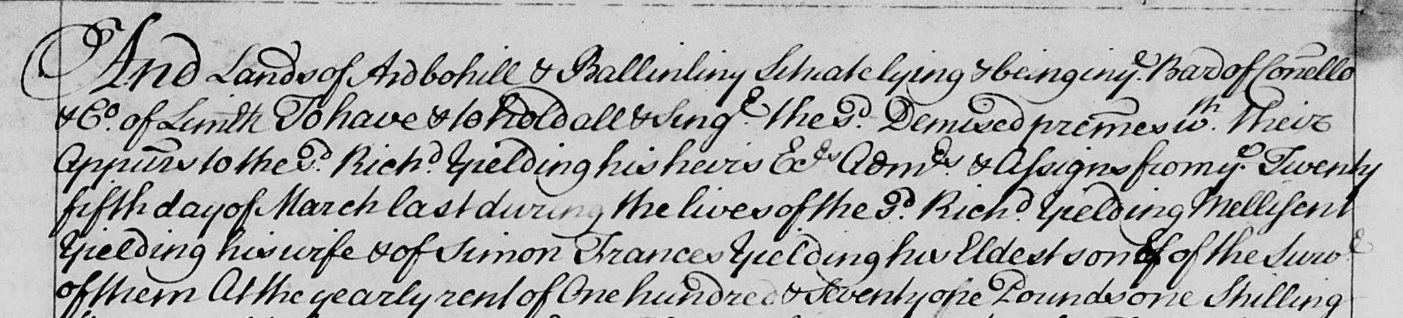 And Lands of Ardbohill & Ballinliny Scituate lying & being in ye. Bar o of Conello
& Co. of Limk To have & to hold all & Singr. the sd. Demised premes wth. their
Appurts to the sd. Richd. Yielding his heirs Exrs Admrs. & Assigns from ye. Twenty
fifth day of March last during the lives of the sd. Richd. Yielding Mellisent
Yielding his wife & of Simon Frances Yielding his Eldest son & of the Survr.
of them At the yearly rent of One hundred & Seventy one Pounds one Shilling